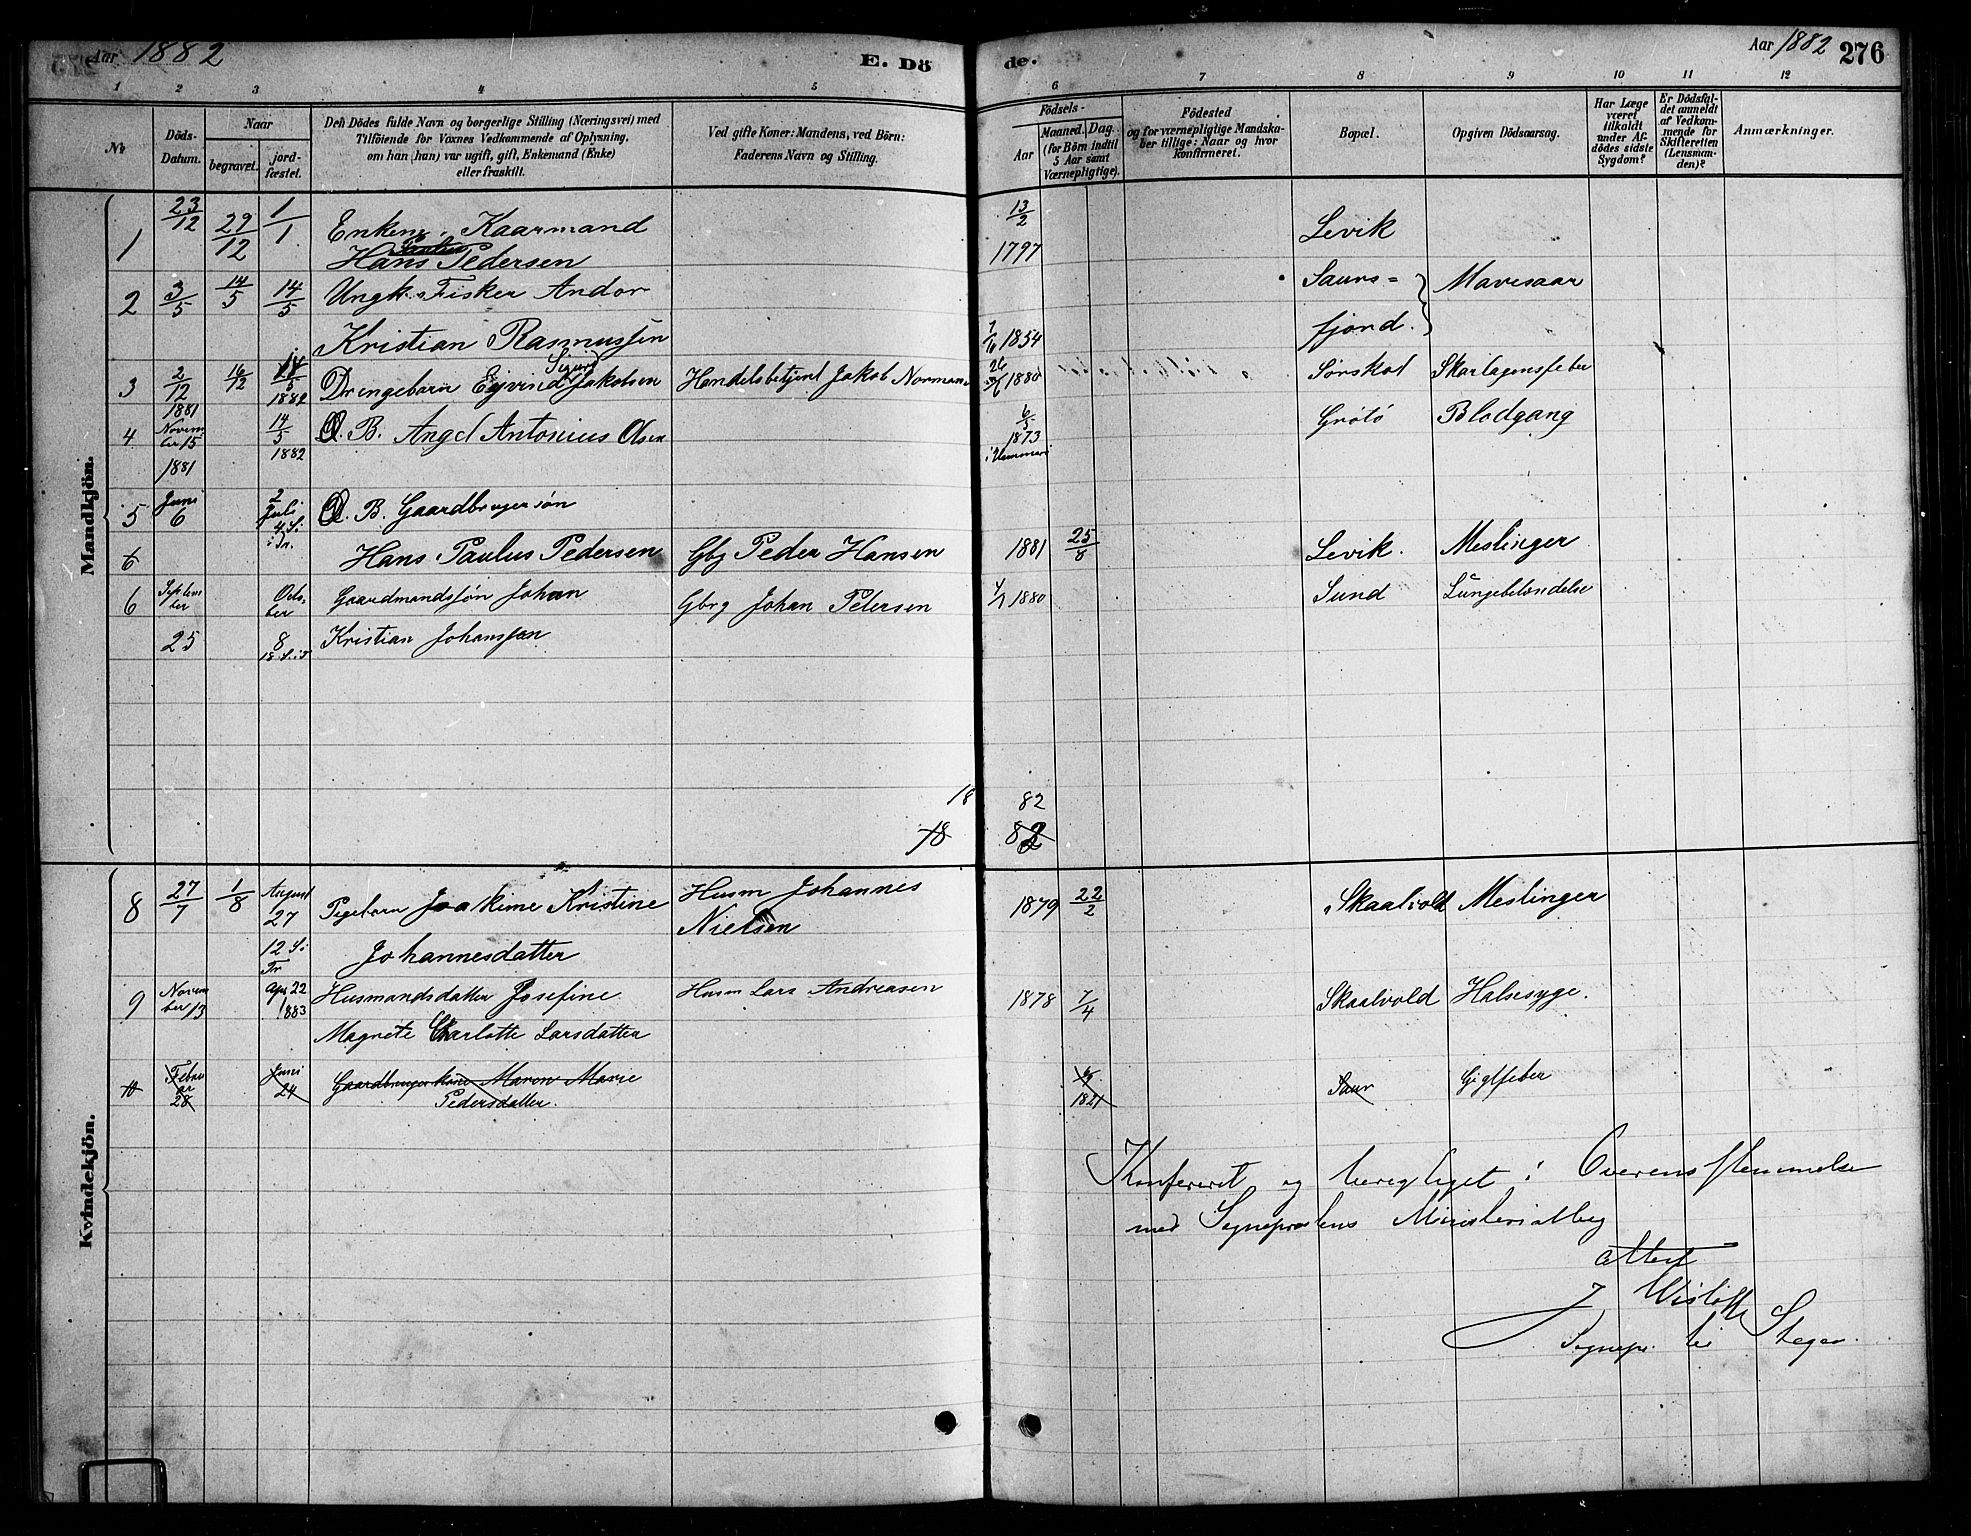 Aar 1882
E. Dö
de.
Aar 1882 276
1 2 3 4 5 6 7 8 9 10 11 12
No
Döds-
Datum.
Naar
begravet.
jord-
fæstet.
Den Dödes fulde Navn og borgerlige Stilling (Næringsvei) med
Tilföiende for Voxnes Vedkommende af Oplysning,
om han (hun) var ugift, gift, Enkemand (Enke)
eller fraskilt.
Ved gifte Koner: Mandens, ved Börn:
Faderens Navn og Stilling.
Födsels-
Aar
Maaned. Dag.
(for Börn indtil
5 Aar samt
Værnepligtige).
Födested
og for værnepligtige Mandska-
ber tillige: Naar og hvor
konfirmeret.
Bopæl.
Opgiven Dödsaarsag.
Har Læge
været
tilkaldt
under Af-
dödes sidste
Sygdom?
Er Dödsfal-
det anmeldt
af Vedkom-
mende for
Skifteretten
(Lensman-
den)?
Anmærkninger.
Mandkjön.
1 23/12 29/12 1/1 Enkem. Kaarmand 13/2 Levik
Paulus
Hans Pedersen 1797
2 3/5 14/5 14/5 Ungk. Fisker Andor Saurs= Mavesaar
Kristian Rasmussen 1854 fjord.
3 2/12 1881 16/12 14/5 1882 Drengebarn Ejvind Sigurd Jakobsen Handelsbetjent Jakob Normann 26 1880 Sørskot Skarlagensfeber
4 Novem
ber 15
1881 14/5 1882 D. B. Angel Antonius Olsen 6/5 1873 i Hammerø Grøtø Blodgang
5 Juni
6 2 Juli
4 S.
i Tr. D. B. Gaardbrugersøn
6 Hans Paulus Pedersen Gbg Peder Hansen 1881 25/8 Levik. Meslinger
6 Septem
ber Octo
ber Gaardmandssøn Johan Gbrg Johan Petersen 1880 Sund Lungebetændelse
25 8 Kristian Johanssen
18 82
18 82
Kvindekjön.
8 27/7 1/8 August
27 Pigebarn Joakime Kristine Husm Johannes 1879 22/2 Skaalvold Meslinger
Nielsen
12 S. i
Tr Johannesdatter
9 Novem
ber 13 Apr 22
1883 Husmandsdatter Josefine Husm Lars Andreasen 1878 7/4 Skaalvold Halssyge.
Magnete Charlotte Larsdatter
10 Febru
ar
28 Juni
24 Gaardbrugerkone Maren Marie 1821 Saur Gigtfeber
Pedersdatter.
Konfereret og berigtiget i Overensstemmelse
med Sogneprestens Ministerialbog
attest
J. Wisløff
Sognepr. til Stegen.